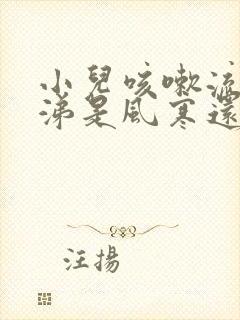 小兒咳嗽流
涕是風寒還
汪揚